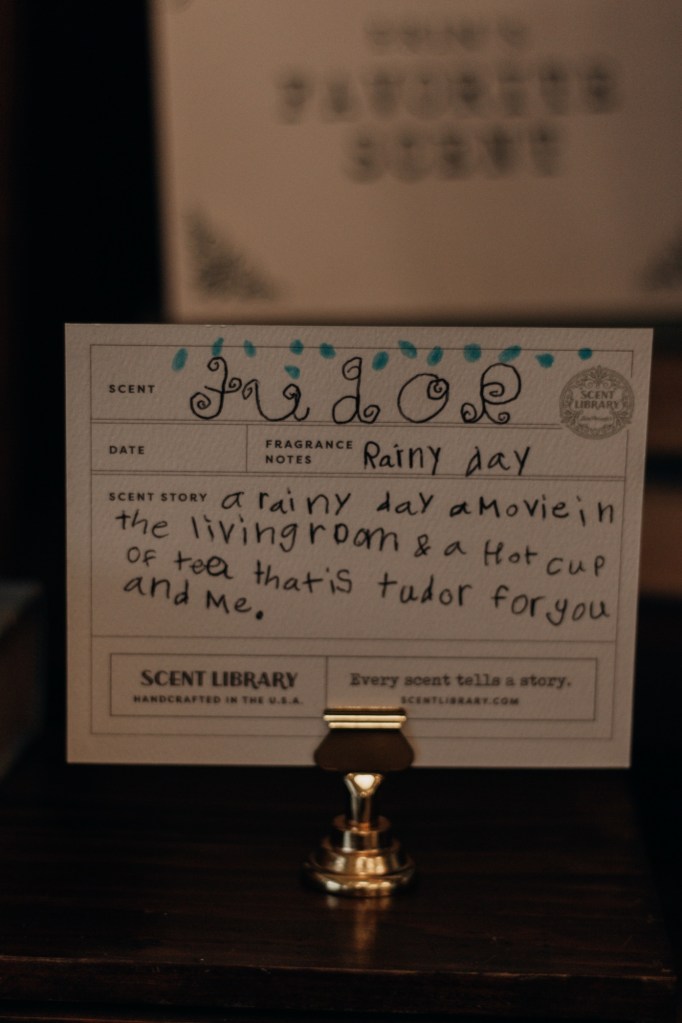 FAVORITE
SCENT
SCENT Tudor
SCENT LIBRARY
DATE
FRAGRANCE NOTES Rainy day
SCENT STORY a rainy day a Movie in
the livingroom & a Hot cup
of tea that is tudor for you
and Me.
SCENT LIBRARY
HANDCRAFTED IN THE U.S.A.
Every scent tells a story.
SCENTLIBRARY.COM